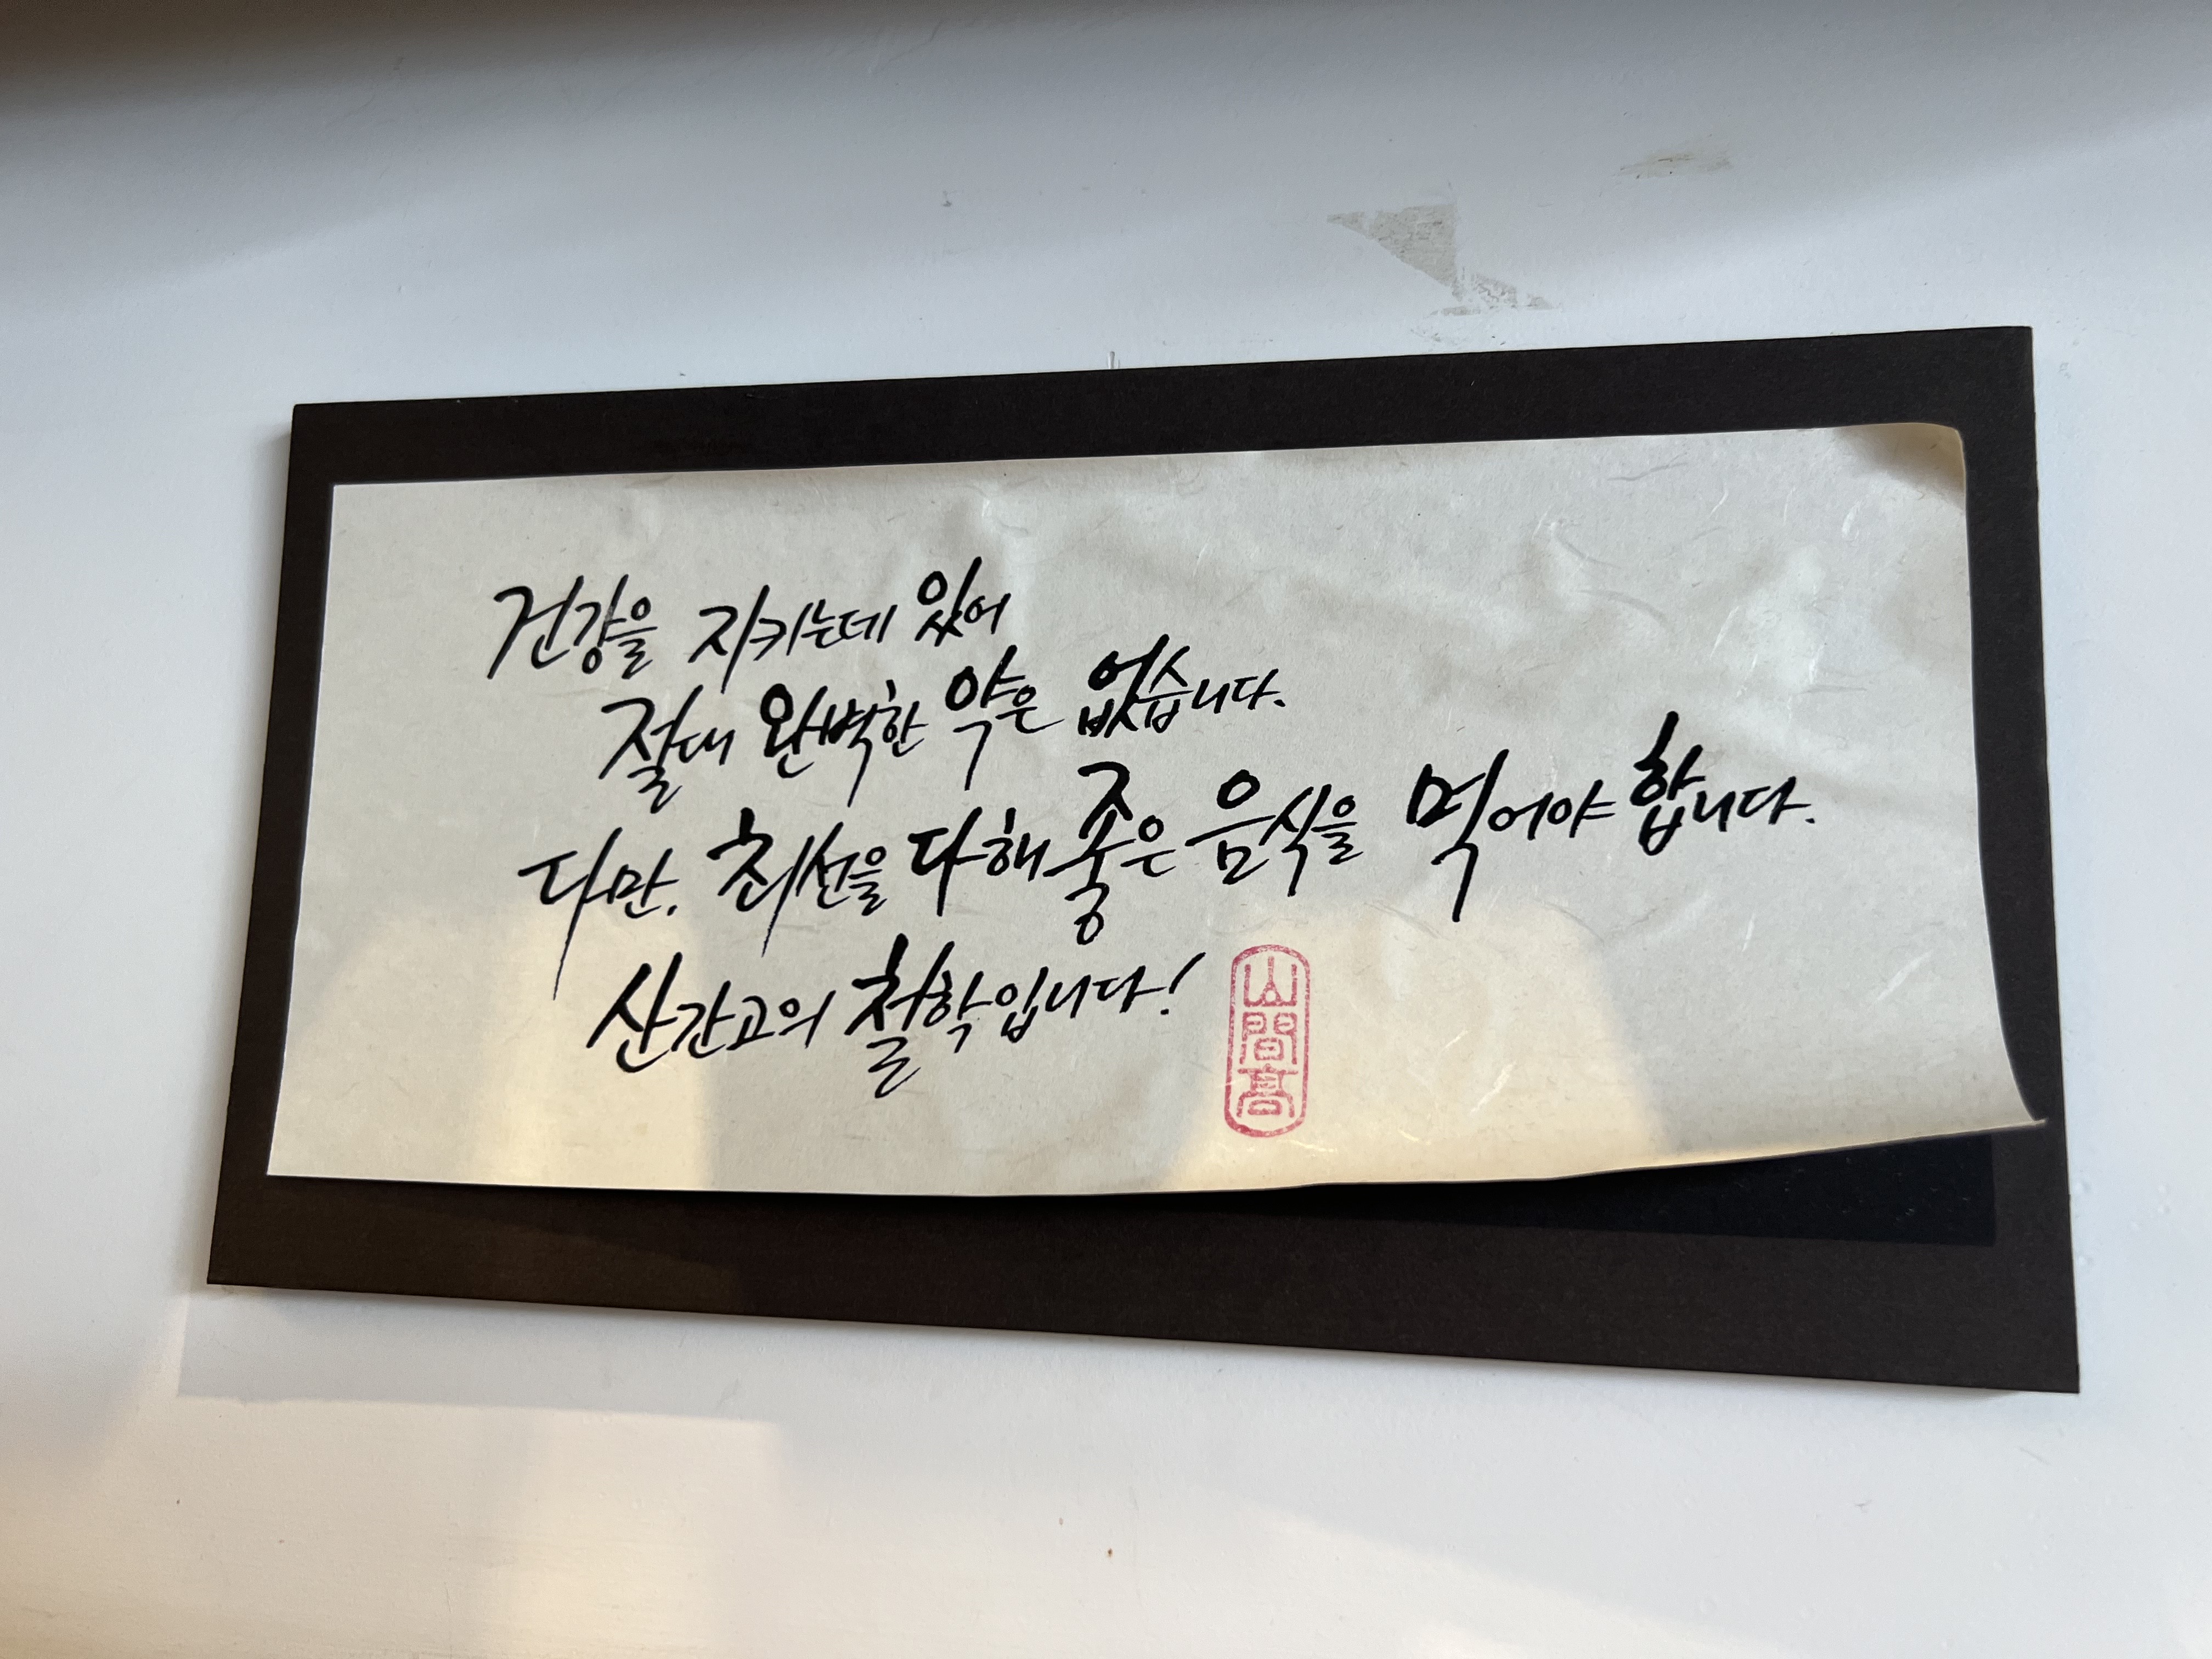 건강을 지키는데 있어
절대 완벽한 약은 없습니다.
다만, 최선을 다해 좋은 음식을 먹어야 합니다.
산간고의 철학입니다!
山間高